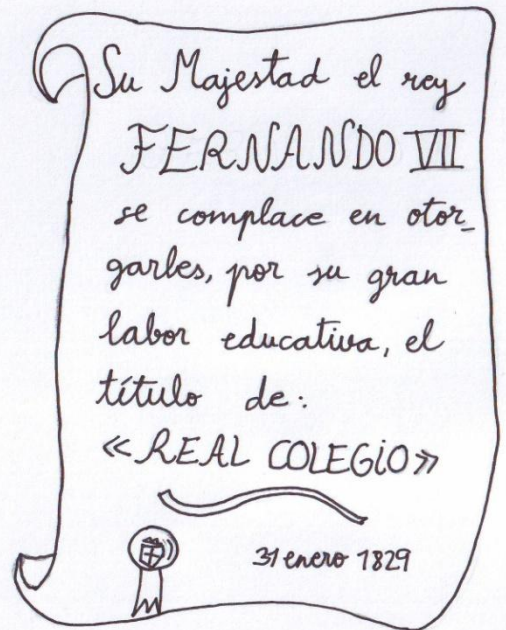 Su Majestad el rey
FERNANDO VII
se complace en otor_
garles, por su gran
labor educativa, el
título de:
«REAL COLEGiO»
31 enero 1829